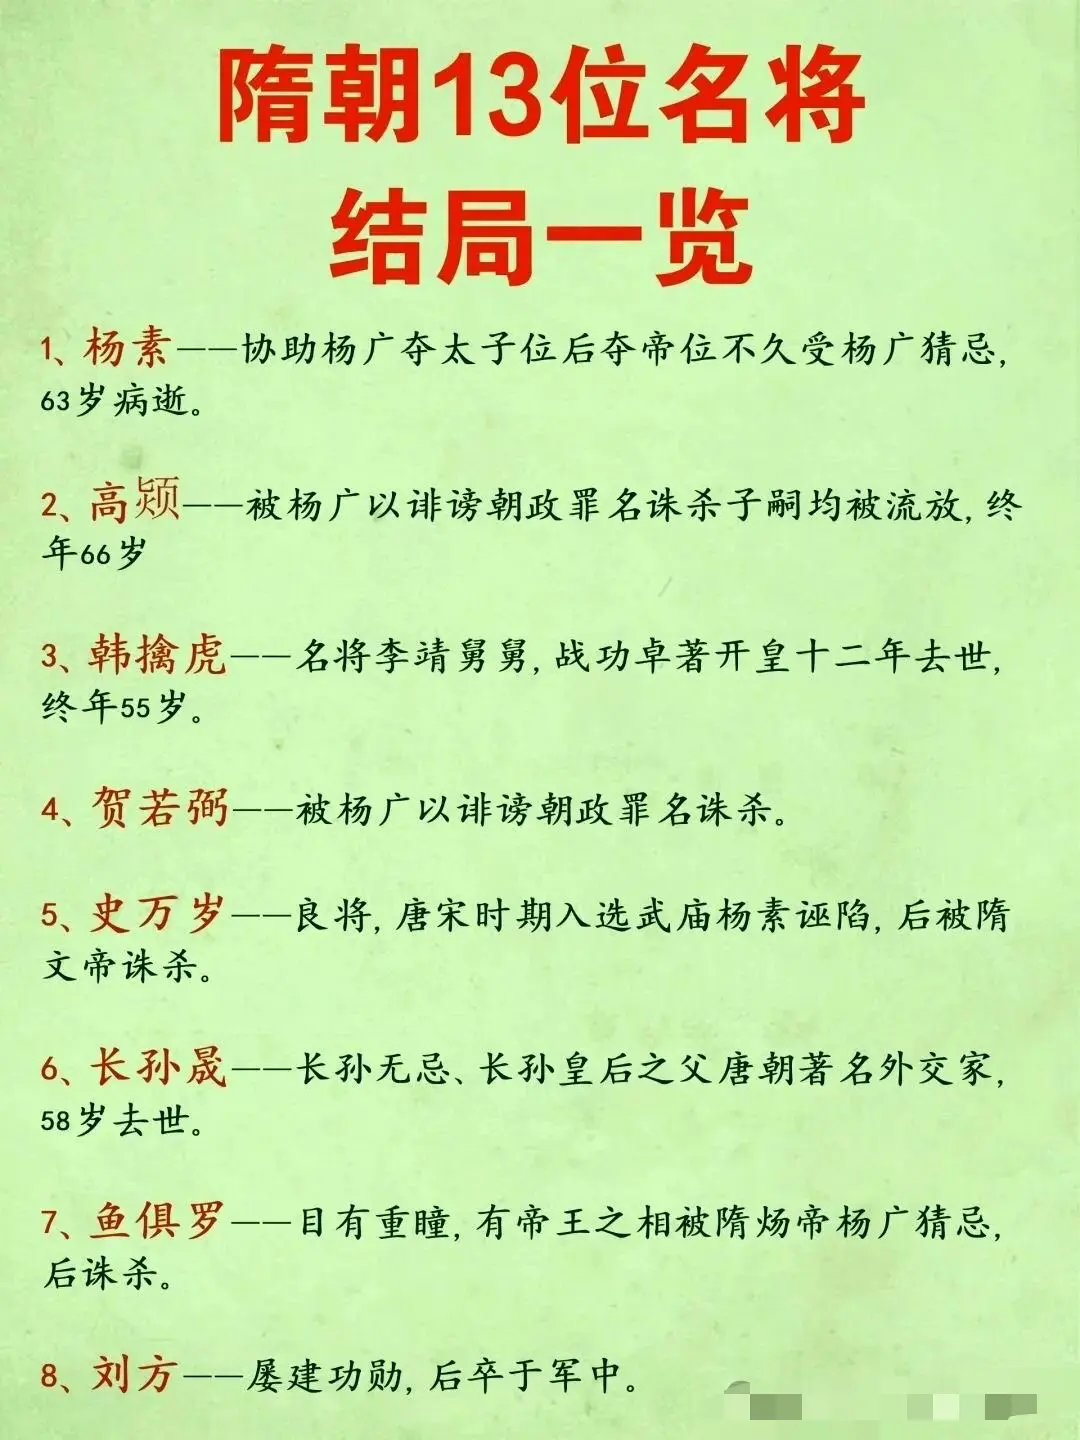 隋朝13位名将
结局一览
1、杨素——协助杨广夺太子位后夺帝位不久受杨广猜忌,
63岁病逝。
2、高颎——被杨广以诽谤朝政罪名诛杀子嗣均被流放,终
年66岁
3、韩擒虎——名将李靖舅舅,战功卓著开皇十二年去世,
终年55岁。
4、贺若弼——被杨广以诽谤朝政罪名诛杀。
5、史万岁——良将,唐宋时期入选武庙杨素诬陷,后被隋
文帝诛杀。
6、长孙晟——长孙无忌、长孙皇后之父唐朝著名外交家,
58岁去世。
7、鱼俱罗——目有重瞳,有帝王之相被隋炀帝杨广猜忌,
后诛杀。
8、刘方——屡建功勋,后卒于军中。